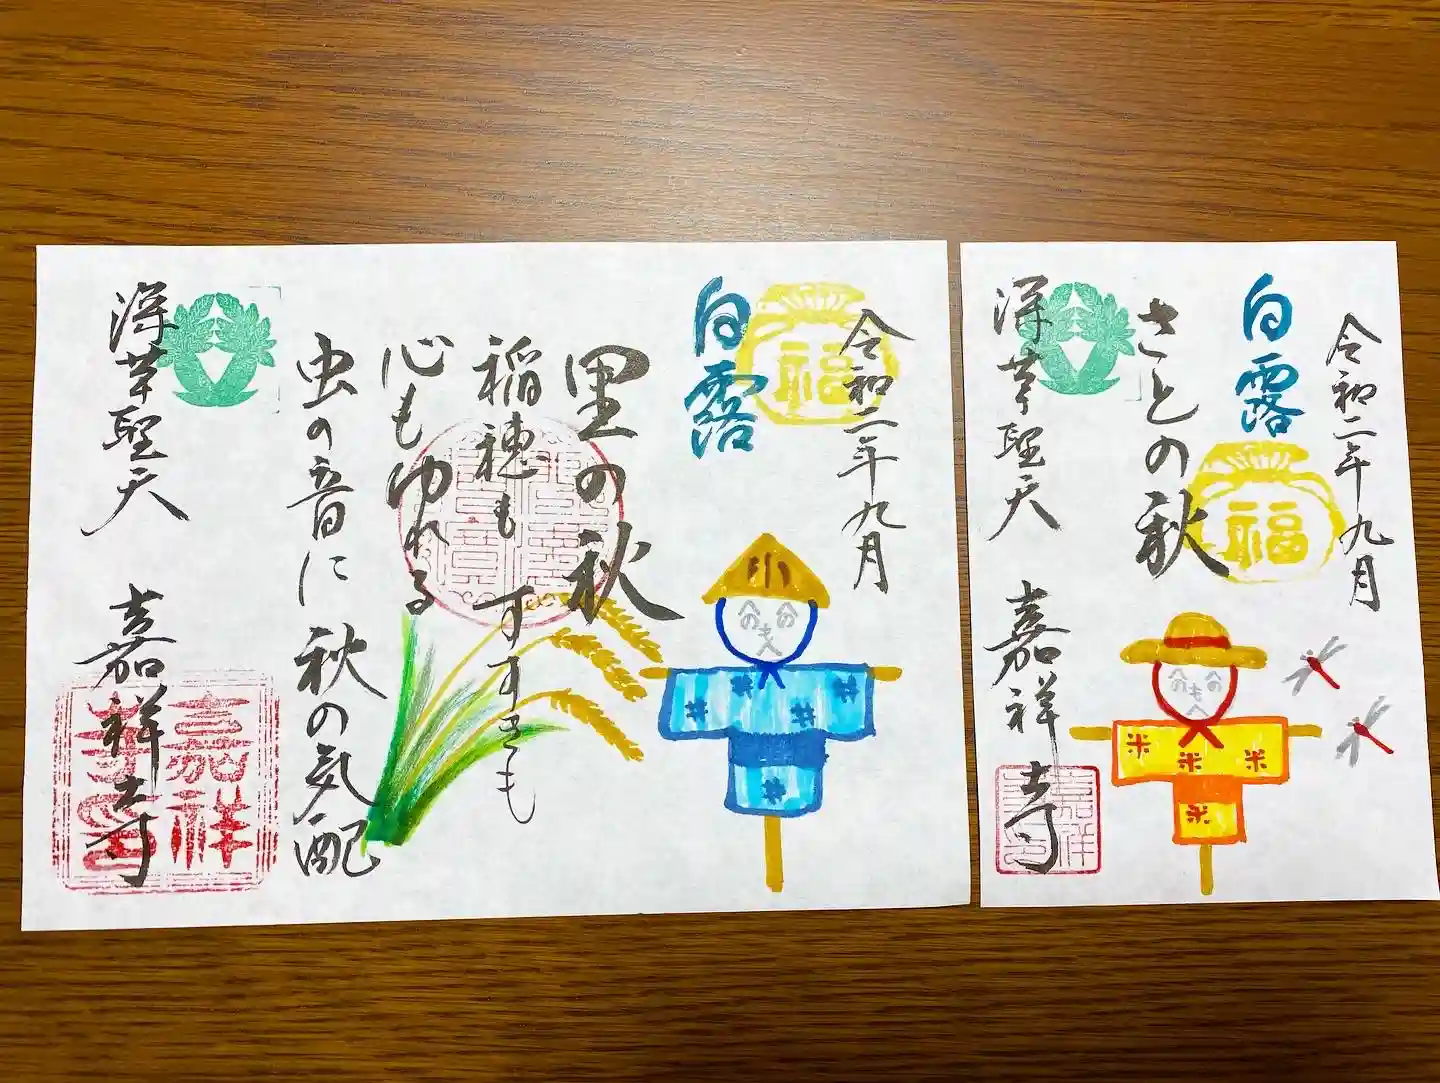 令和二年九月
白露
福
里の秋
稲穂も すすきも
心もゆれる
虫の音に 秋の気配
深草聖天 嘉祥寺
嘉祥
令和二年九月
白露
福
さとの秋
深草聖天 嘉祥寺
嘉祥
米
米
米
米